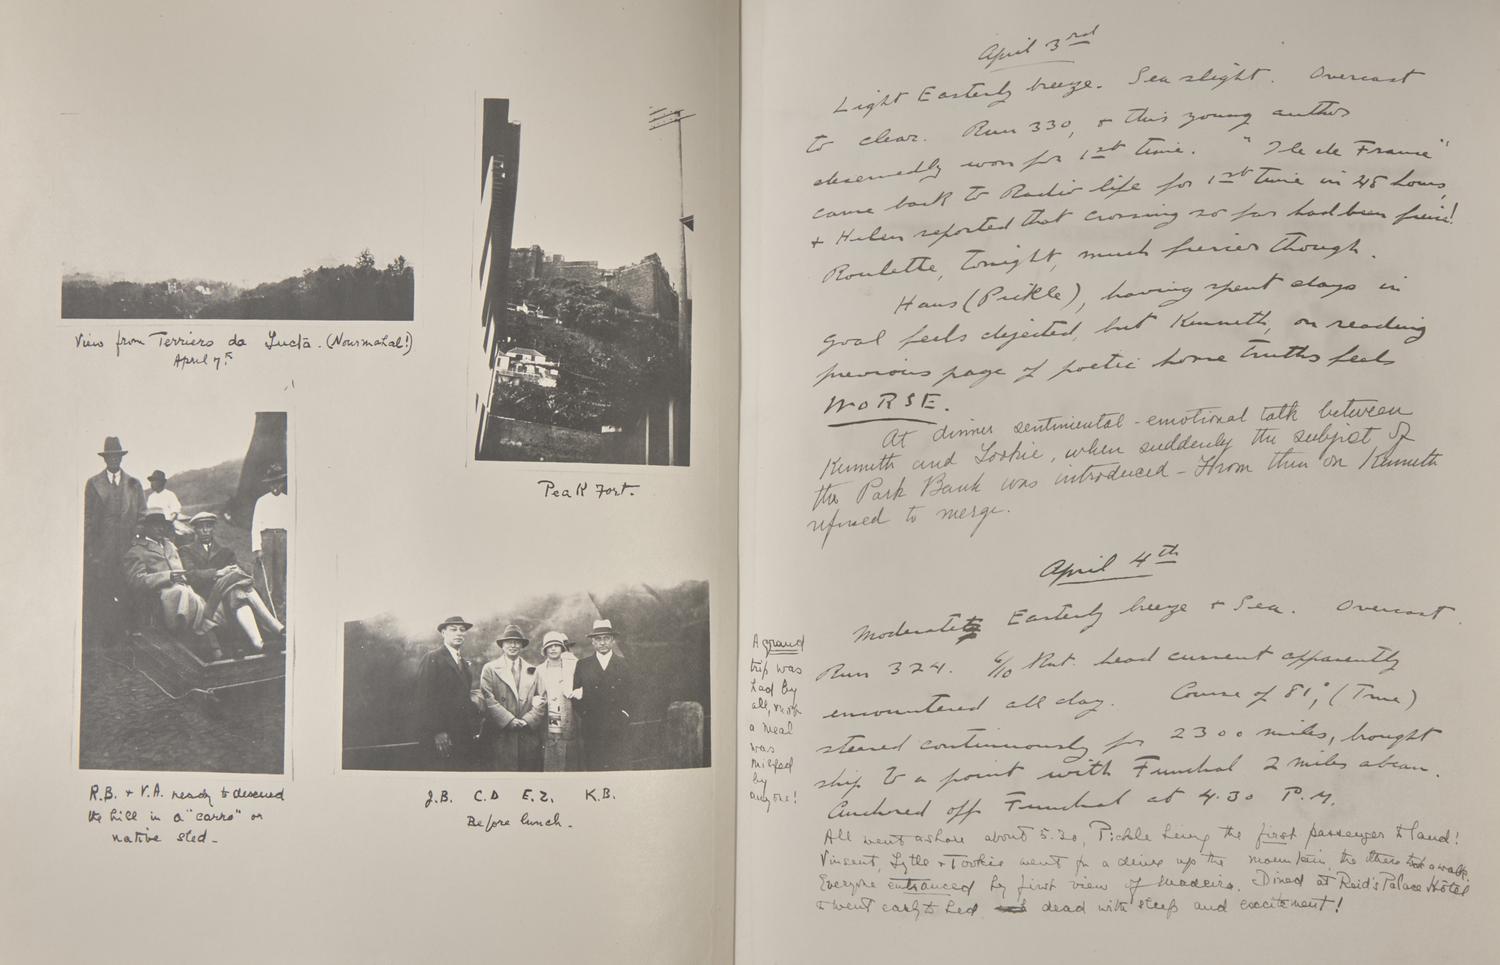 View from Terriero da Lucta. (Nourmahal!)
April 7th
Peak Fort.
R.B. + V.A. ready to descend
the hill in a "carro" or
native sled -
J.B. C.D E.Z. K.B.
Before lunch.
April 3rd
Light Easterly breeze. Sea slight. Overcast
to clear. Run 330, + this young author
deservedly won for 1st time. "Ile de France"
came back to Radio life for 1st time in 48 hours,
+ Helen reported that crossing so far had been fierce!
Roulette, tonight, much fiercer though.
Hans (Pickle), having spent days in
goal feels dejected, but Kenneth, on reading
previous page of poetic home truths feels
WORSE.
At dinner sentimental - emotional talk between
Kenneth and Tookie, when suddenly the subject of
the Park Bank was introduced - From then on Kenneth
refused to merge.
April 4th
Moderate Easterly breeze + Sea. Overcast.
Run 324. 6/10 Knt. head current apparently
encountered all day. Course of 81°, (True)
steered continuously for 2300 miles, brought
ship to a point with Funchal 2 miles abeam.
Anchored off Funchal at 4.30 P.M.
All went ashore about 5.30, Pickle being the first passenger to land!
Vincent, Lytle + Tookie went for a drive up the mountain, the others took a walk.
Everyone entranced by first view of Madeira. Dined at Reid's Palace Hôtel
+ went early to bed dead with sleep and excitement!
A grand
trip was
had by
all, not
a meal
was
missed
by
anyone!